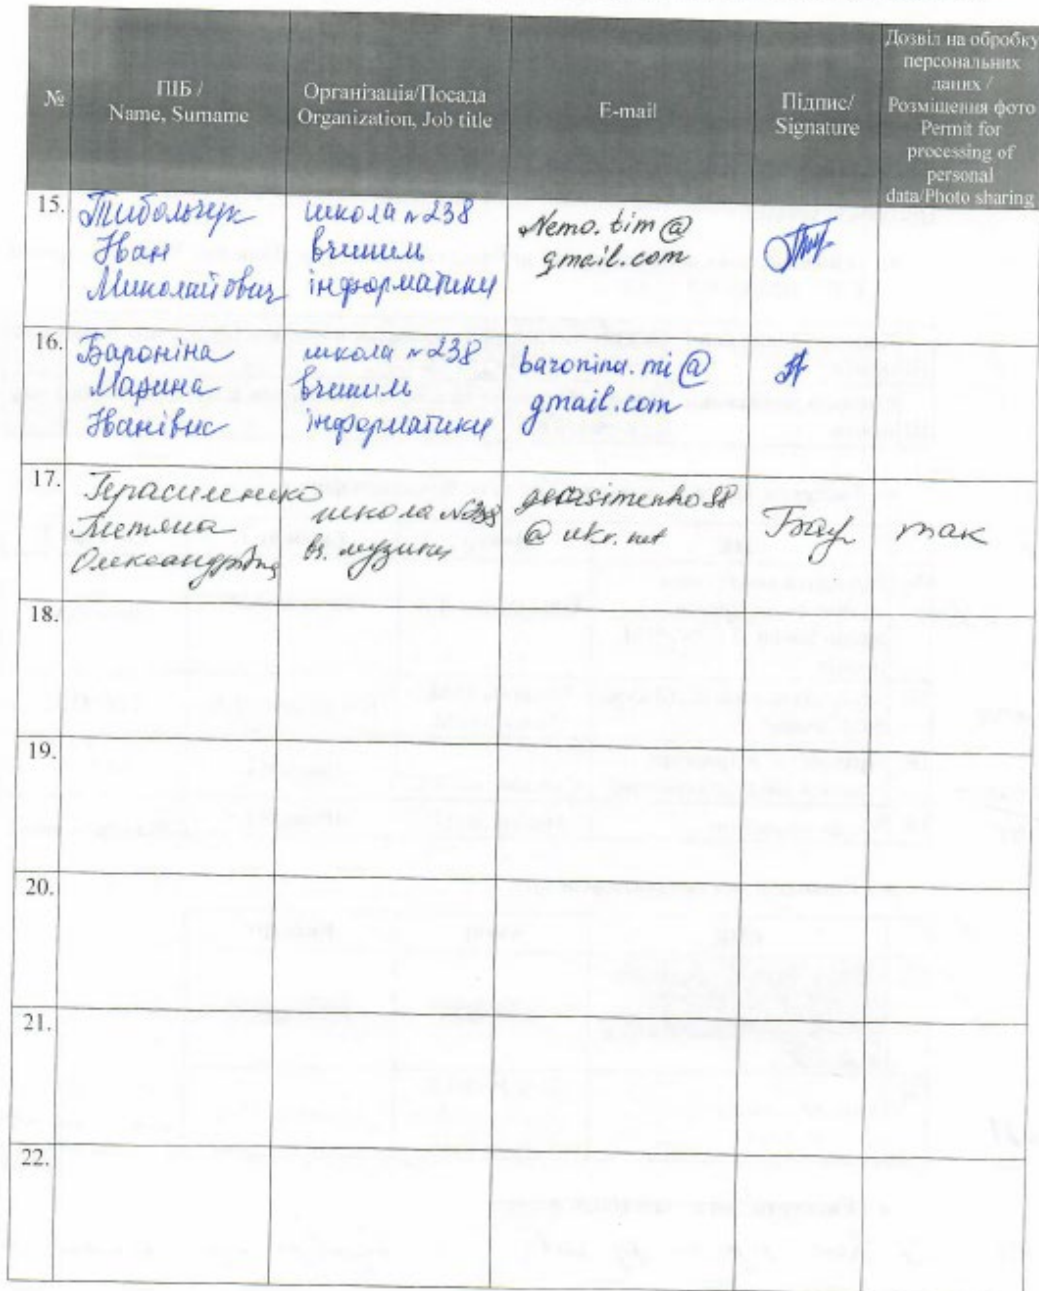 №
ПІБ /
Name, Surname
Організація/Посада
Organization, Job title
E-mail
Підпис/
Signature
Дозвіл на обробку
персональних
даних /
Розміщення фото
Permit for
processing of
personal
data/Photo sharing
15.
Іван
Миколайович
школа №238
вчитель
інформатики
Nemo.tim@
gmail.com
16.
Бароніна
Марина
Іванівна
школа №238
вчитель
інформатики
baronina.mi@
gmail.com
17.
Герасименко
Тетяна
Олександрівна
школа №238
вч. музики
gerasimenko88
@ukr.net
так
18.
19.
20.
21.
22.